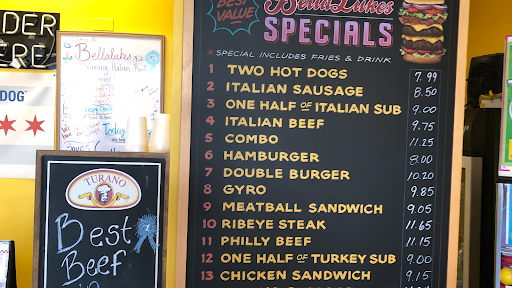 DER
ERE
DOG™
Bellalukes
Winning Italian Beef
Today
TURANO
Best
Beef
BEST
VALUE
BellaLukes
SPECIALS
* SPECIAL INCLUDES FRIES & DRINK
1 TWO HOT DOGS 7.99
2 ITALIAN SAUSAGE 8.50
3 ONE HALF OF ITALIAN SUB 9.00
4 ITALIAN BEEF 9.75
5 COMBO 11.25
6 HAMBURGER 8.00
7 DOUBLE BURGER 10.20
8 GYRO 9.85
9 MEATBALL SANDWICH 9.05
10 RIBEYE STEAK 11.65
11 PHILLY BEEF 11.15
12 ONE HALF OF TURKEY SUB 9.00
13 CHICKEN SANDWICH 9.15